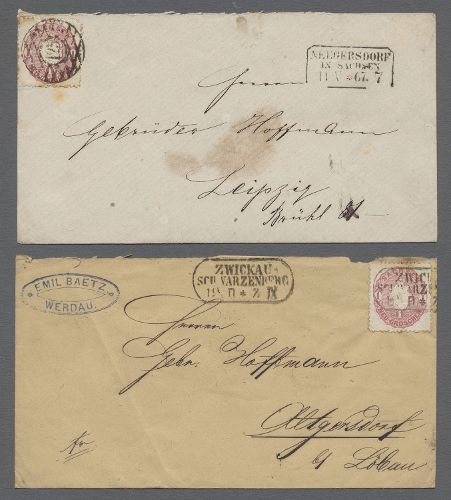 NEUGERSDORF
IN SACHSEN
11 V * 67. 7
Herren
Gebrüder Hoffmann
Leipzig
Brühl
EMIL BAETZ
WERDAU.
ZWICKAU
SCHWARZENBERG
II * Z IX
ZWICK
SCHWARZ
II *
1
NEUGROSCHEN
Herren
Gebr. Hoffmann
Altgersdorf
b/ Löbau
fr